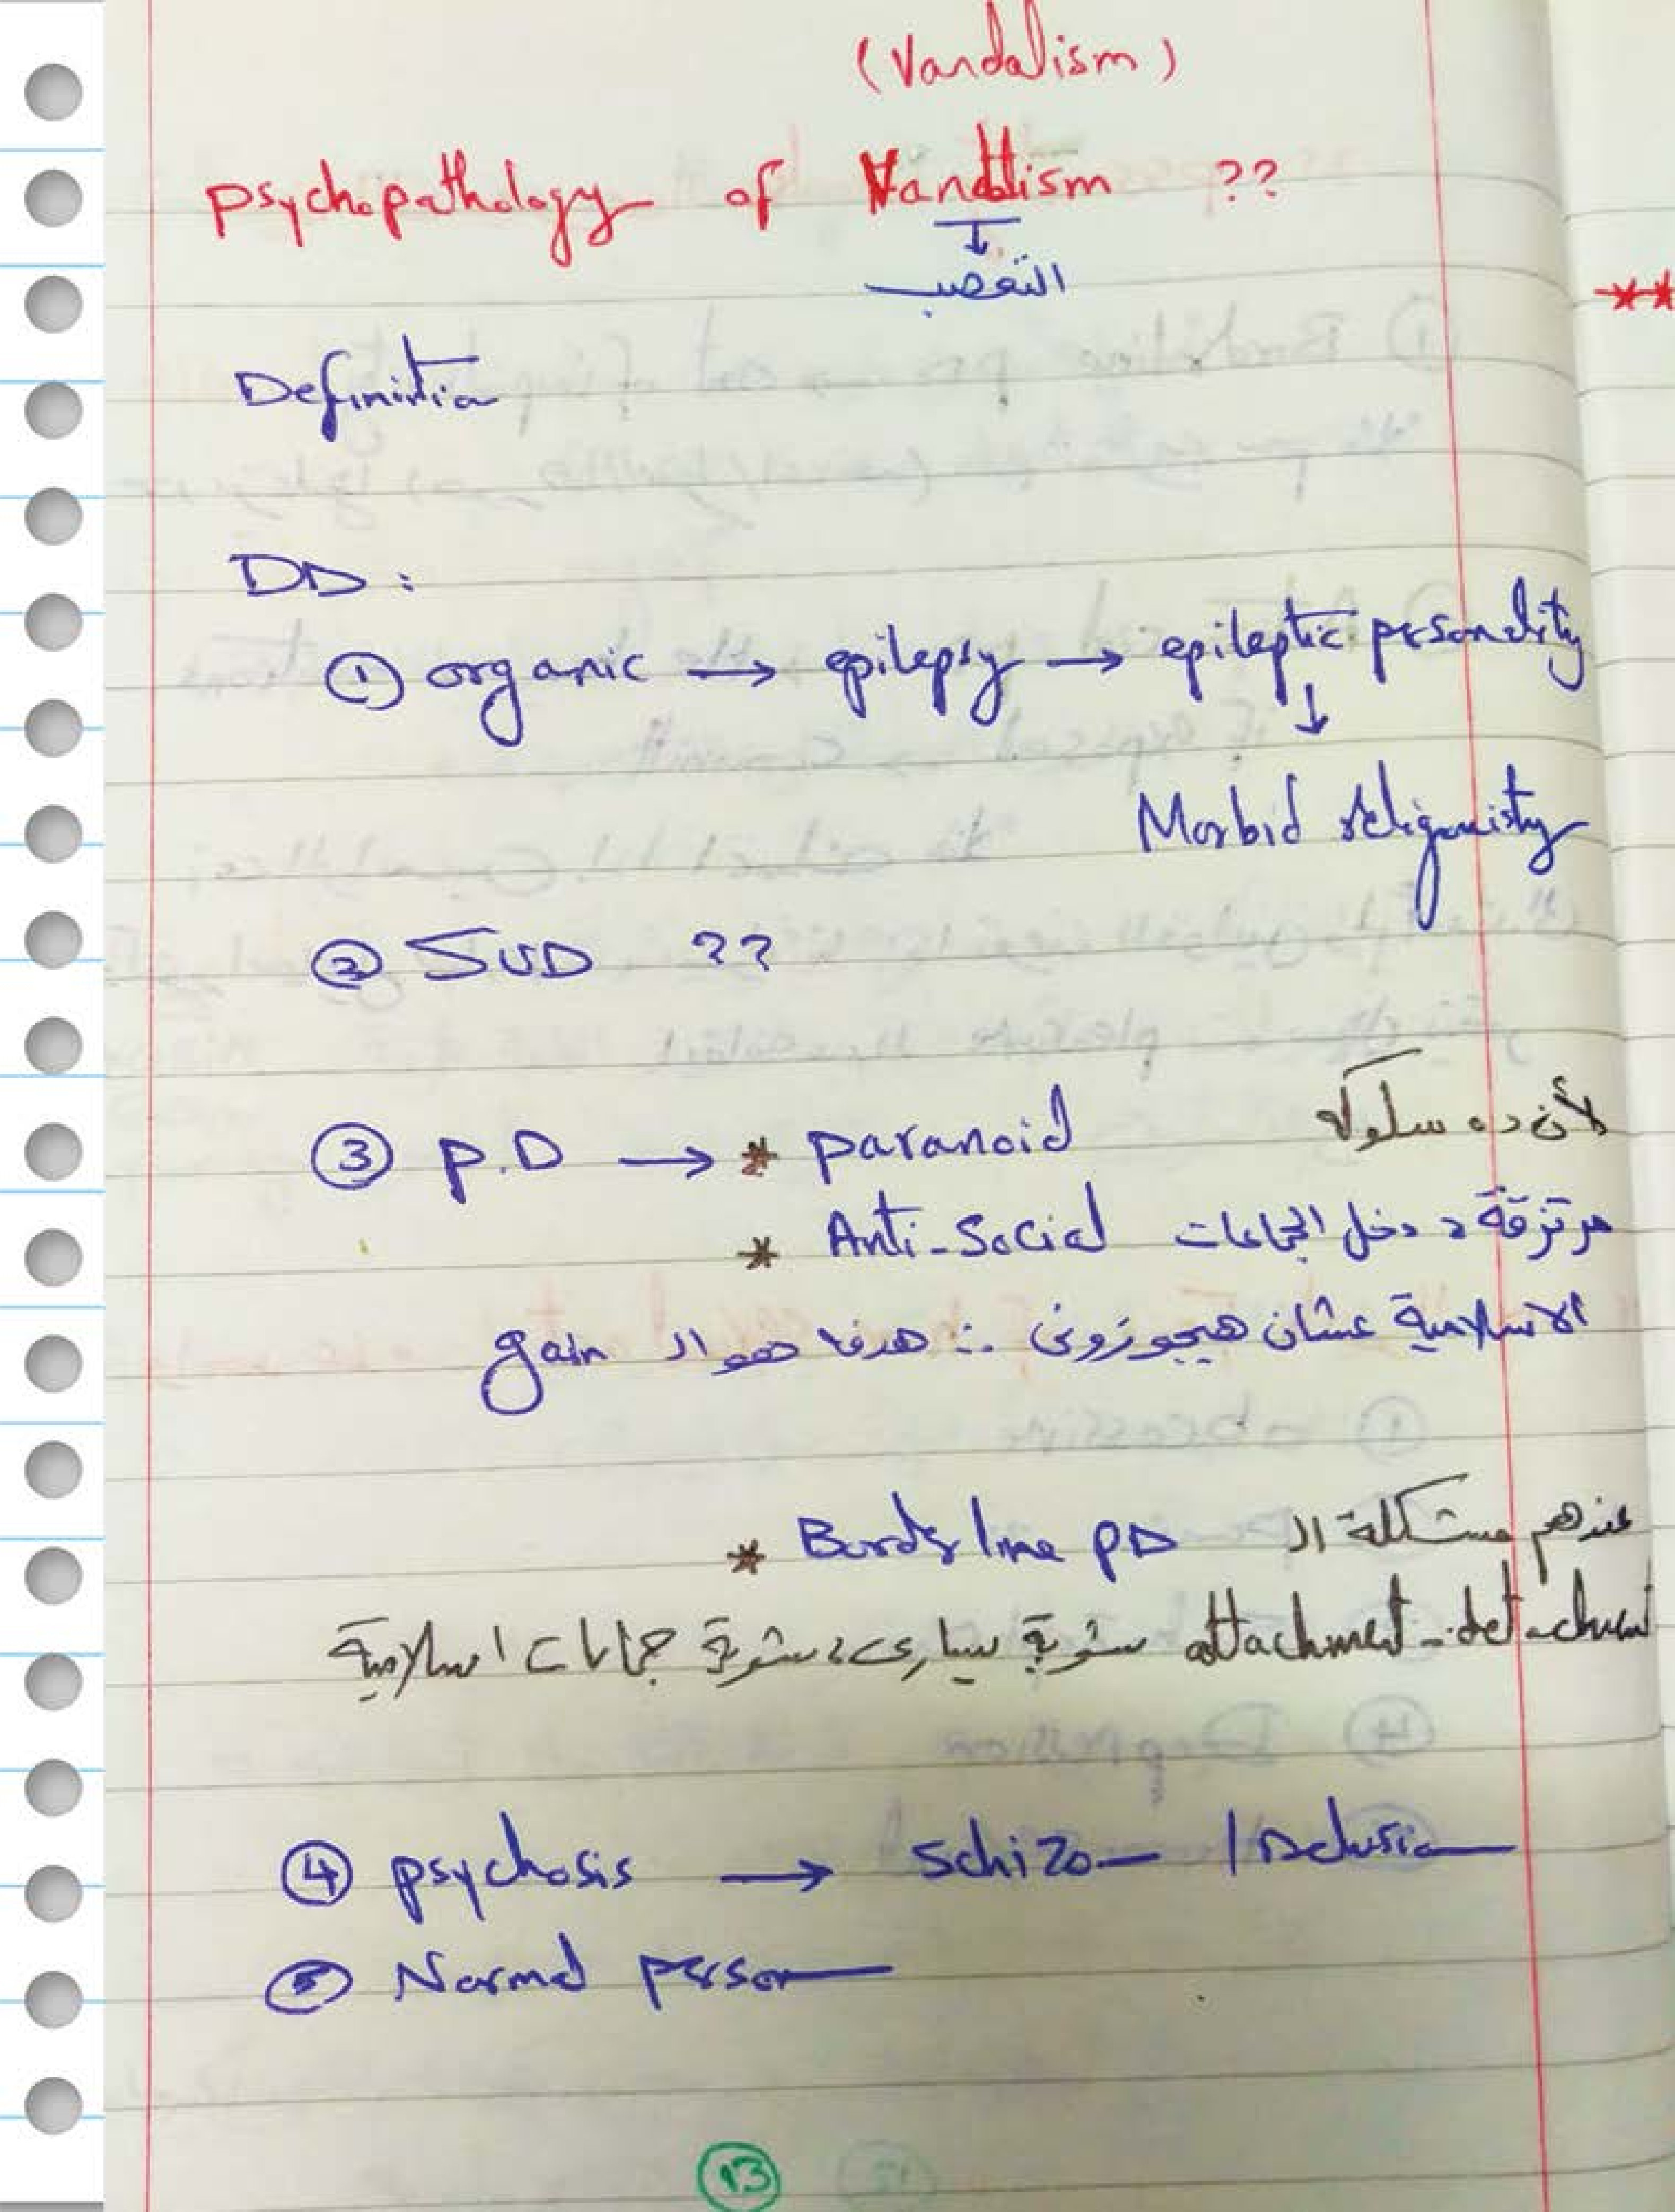 (Vandalism)
psychopathology of Vandalism ??
↓
التعصب
Definition
DD:
① organic → epilepsy → epileptic personality
↓
Morbid religiousity
② SUD ??
③ P.D → * paranoid لأن ده سلوكه
* Anti-Social مرتزقة دخل الجماعات
الاسلامية عشان هيجوزونى ∴ هدفها هو الـ gain
* Borderline PD عندهم مشكلة الـ
attachment - detachment شوية يسارى، شوية جماعات اسلامية
④ psychosis → Schizo— / Delusion
⑤ Normal person
13